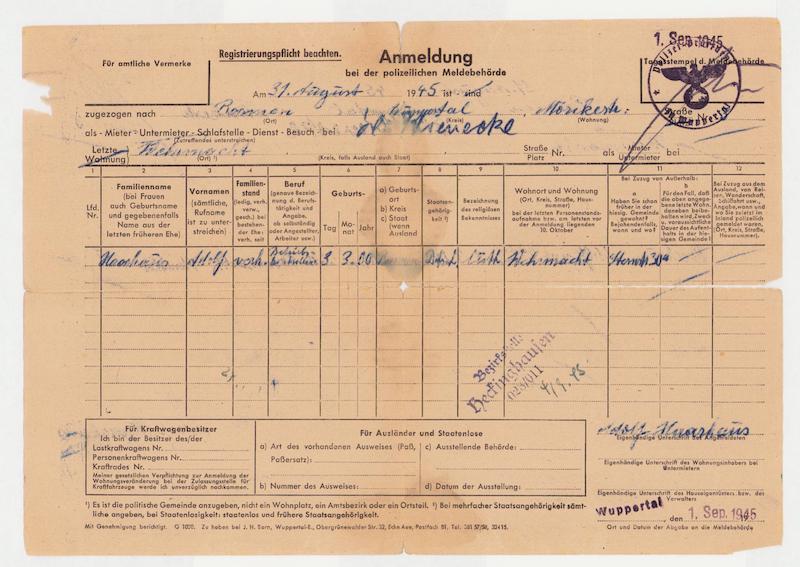 Für amtliche Vermerke
Registrierungspflicht beachten.
Anmeldung
bei der polizeilichen Meldebehörde
1. Sep. 1945
Tagesstempel d. Meldebehörde
Am 31. August 1945 ist - sind
zugezogen nach Barmen Wuppertal, Mörikestr.
(Ort) (Kreis) (Wohnung)
Straße
als - Mieter - Untermieter - Schlafstelle - Dienst - Besuch bei
(Zutreffendes unterstreichen)
Letzte Wohnung Wehrmacht Straße Platz Nr. als Mieter Untermieter bei
(Ort ¹) (Kreis, falls Ausland auch Staat)
1 2 3 4 5 6 7 8 9 10 11 12
Lfd. Nr.
Familienname (bei Frauen auch Geburtsname und gegebenenfalls Name aus der letzten früheren Ehe)
Vornamen (sämtliche, Rufname ist zu unterstreichen)
Familienstand (ledig, verh., verw., gesch.) bei bestehender Ehe: verh. seit
Beruf (genaue Bezeichnung d. Berufstätigkeit und Angabe, ob selbständig oder Angestellter, Arbeiter usw.)
Geburts-
Tag Monat Jahr
a) Geburtsort b) Kreis c) Staat (wenn Ausland
Staatsangehörigkeit ²)
Bezeichnung des religiösen Bekenntnisses
Wohnort und Wohnung (Ort, Kreis, Straße, Hausnummer) bei der letzten Personenstandsaufnahme am der Anmeldung liegenden 10. Oktober
Bei Zuzug von Außerhalb:
a Haben Sie schon früher in der hiesig. Gemeinde gewohnt? Bejahendenfalls, wann und wo?
b Für den Fall, daß die oben angegebene letzte Wohn. daneben beibehalten wird, Zweck u. voraussichtliche Dauer des Aufenthalts in der hiesigen Gemeinde!
Bei Zuzug aus dem Ausland, von Reisen, Wanderschaft, Schiffahrt usw., Angabe, wann und wo Sie zuletzt im Inland polizeilich gemeldet waren. (Ort, Kreis, Straße, Hausnummer).
Haarhaus Adolf verh. 3. 3. 00 Barmen Deutsch luth Wehrmacht
Bezirksstelle
Heckinghausen
4/9. 45
Für Kraftwagenbesitzer
Ich bin der Besitzer des/der
Lastkraftwagens Nr.
Personenkraftwagens Nr.
Kraftrades Nr.
Meiner gesetzlichen Verpflichtung zur Anmeldung der Wohnungsveränderung bei der Zulassungsstelle für Kraftfahrzeuge werde ich unverzüglich nachkommen.
Für Ausländer und Staatenlose
a) Art des vorhandenen Ausweises (Paß, Paßersatz):
b) Nummer des Ausweises:
c) Ausstellende Behörde:
d) Datum der Ausstellung:
Adolf Haarhaus
Eigenhändige Unterschrift des Angemeldeten
Eigenhändige Unterschrift des Wohnungsinhabers bei Untermietern
Eigenhändige Unterschrift des Hauseigentümers bzw. des Verwalters
Wuppertal, den 1. Sep. 1945
Ort und Datum der Abgabe an die Meldebehörde
¹) Es ist die politische Gemeinde anzugeben, nicht ein Wohnplatz, ein Amtsbezirk oder ein Ortsteil. ²) Bei mehrfacher Staatsangehörigkeit sämtliche angeben, bei Staatenlosigkeit: staatenlos und frühere Staatsangehörigkeit.
Mit Genehmigung berichtigt. G 1000. Zu haben bei J. H. Born, Wuppertal-E., Obergrünewalder Str. 32